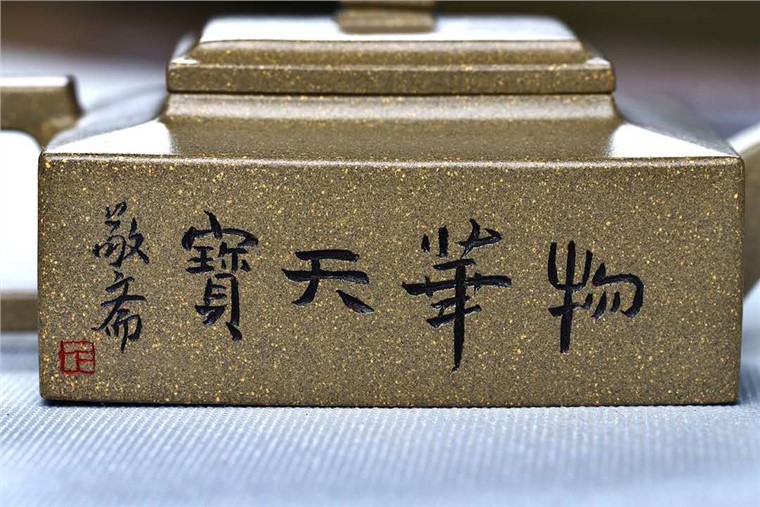 物華天寶
敬斋